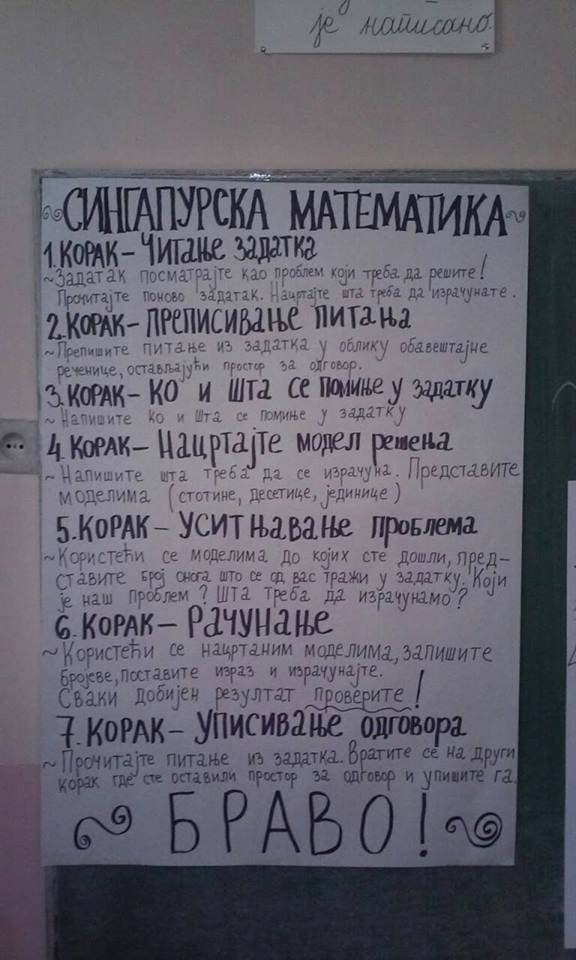 је написано.
СИНГАПУРСКА МАТЕМАТИКА
1. КОРАК – ЧИТАЊЕ ЗАДАТКА
~ Задатак посматрајте као проблем који треба да решите!
Прочитајте поново задатак. Нацртајте шта треба да израчунате.
2. КОРАК – ПРЕПИСИВАЊЕ ПИТАЊА
~ Препишите питање из задатка у облику обавештајне
реченице, остављајући простор за одговор.
3. КОРАК – КО И ШТА СЕ ПОМИЊЕ У ЗАДАТКУ
~ Напишите ко и шта се помиње у задатку
4. КОРАК – Нацртајте модел решења
~ Напишите шта треба да се израчуна. Представите
моделима (стотине, десетице, јединице)
5. КОРАК – УСИТЊАВАЊЕ проблема
~ Користећи се моделима до којих сте дошли, пред-
ставите број онога што се од вас тражи у задатку. Који
је наш проблем? Шта треба да израчунамо?
6. КОРАК – РАЧУНАЊЕ
~ Користећи се нацртаним моделима, запишите
бројеве, поставите израз и израчунајте.
Сваки добијен резултат проверите!
7. КОРАК – УПИСИВАЊЕ ОДГОВОРА
~ Прочитајте питање из задатка. Вратите се на други
корак где сте оставили простор за одговор и упишите га.
БРАВО!